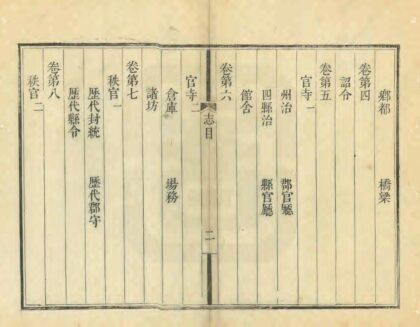 鄉都 橋梁
卷第四
詔令
卷第五
官寺一
州治 郡官廳
四縣治 縣官廳
館舍
卷第六
志目
二
官寺二
倉庫 場務
諸坊
卷第七
秩官一
歷代封統 歷代郡守
歷代縣令
卷第八
秩官二